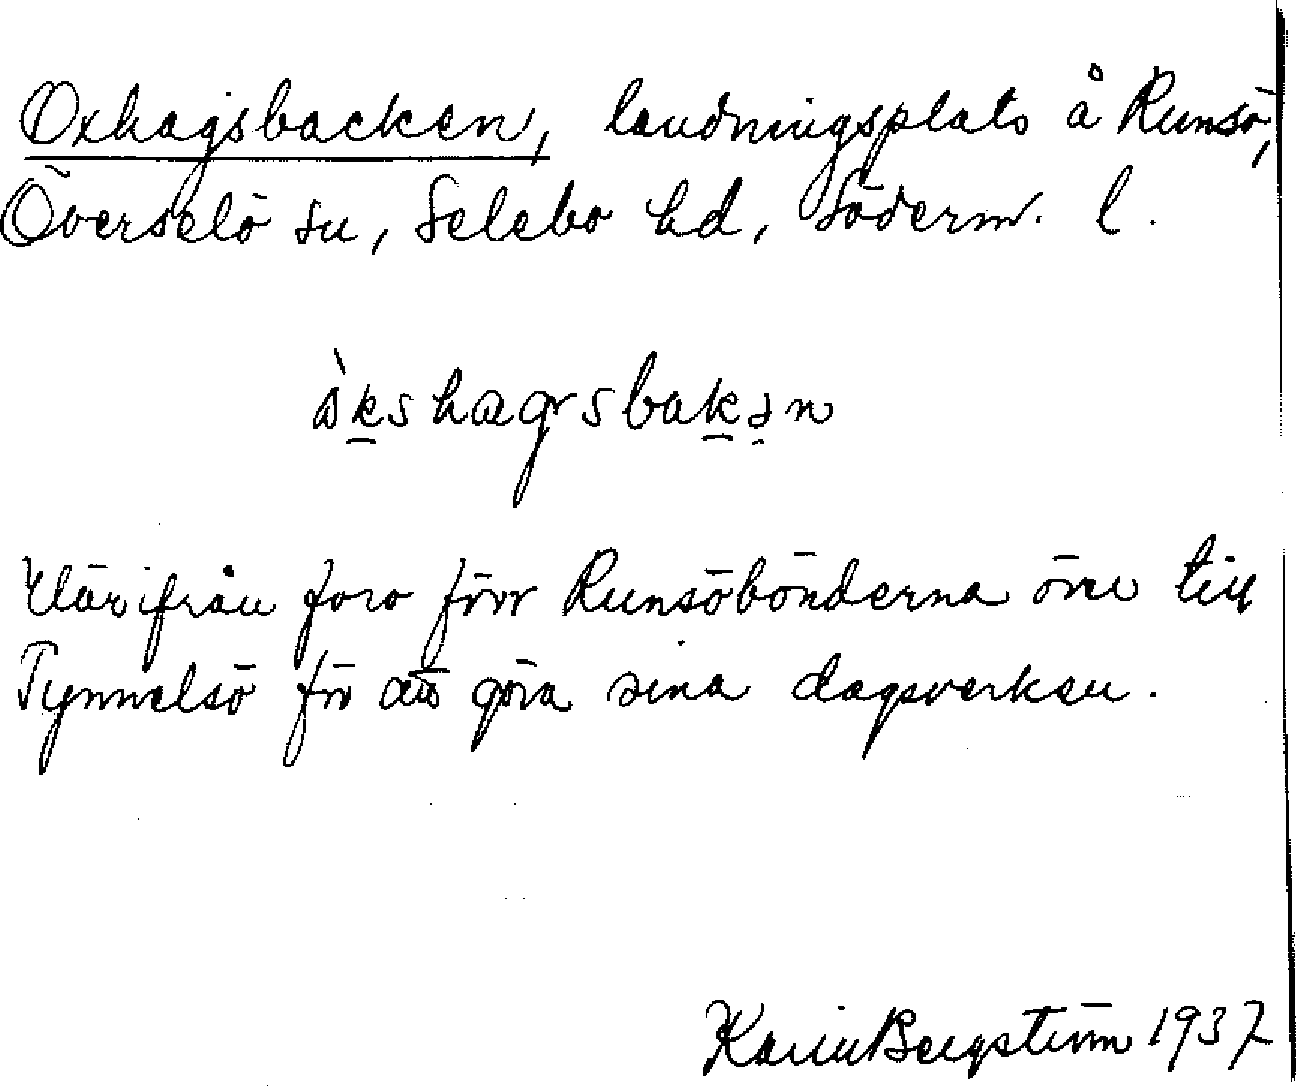 Oxhagsbacken, landningsplats å Runsö,
Överselö sn, Selebo hd, Söderm. l.
Härifrån foro förr Runsöbönderna över till
Tynnelsö för att göra sina dagsverken.
Karin Bergström 1937